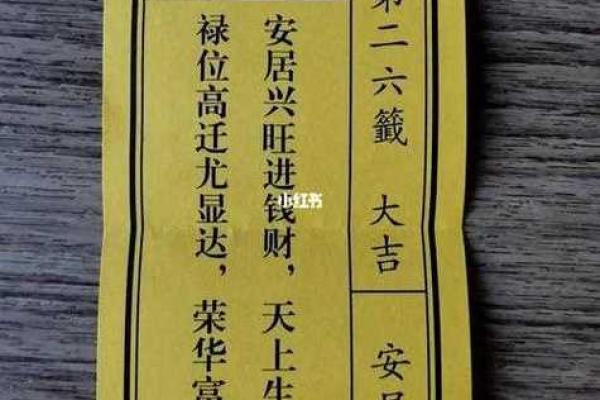 第二六籤 大吉
安居
安居兴旺进钱财，天上生
禄位高迁尤显达，荣华富
小红书